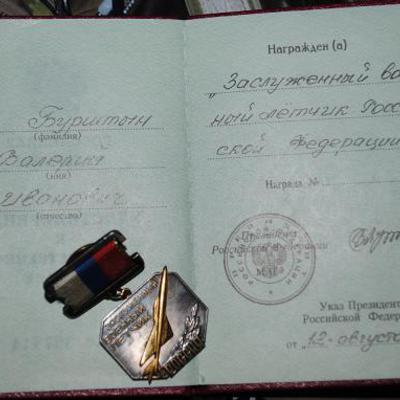 Бурштын
(фамилия)
Валерий
(имя)
Иванович
(отчество)
Награжден (а)
„Заслуженный во
ный лётчик Росс
ской Федерации
Награда №
Президент
Российской Федерации
Указ Президен
Российской Федера
от "12" августа